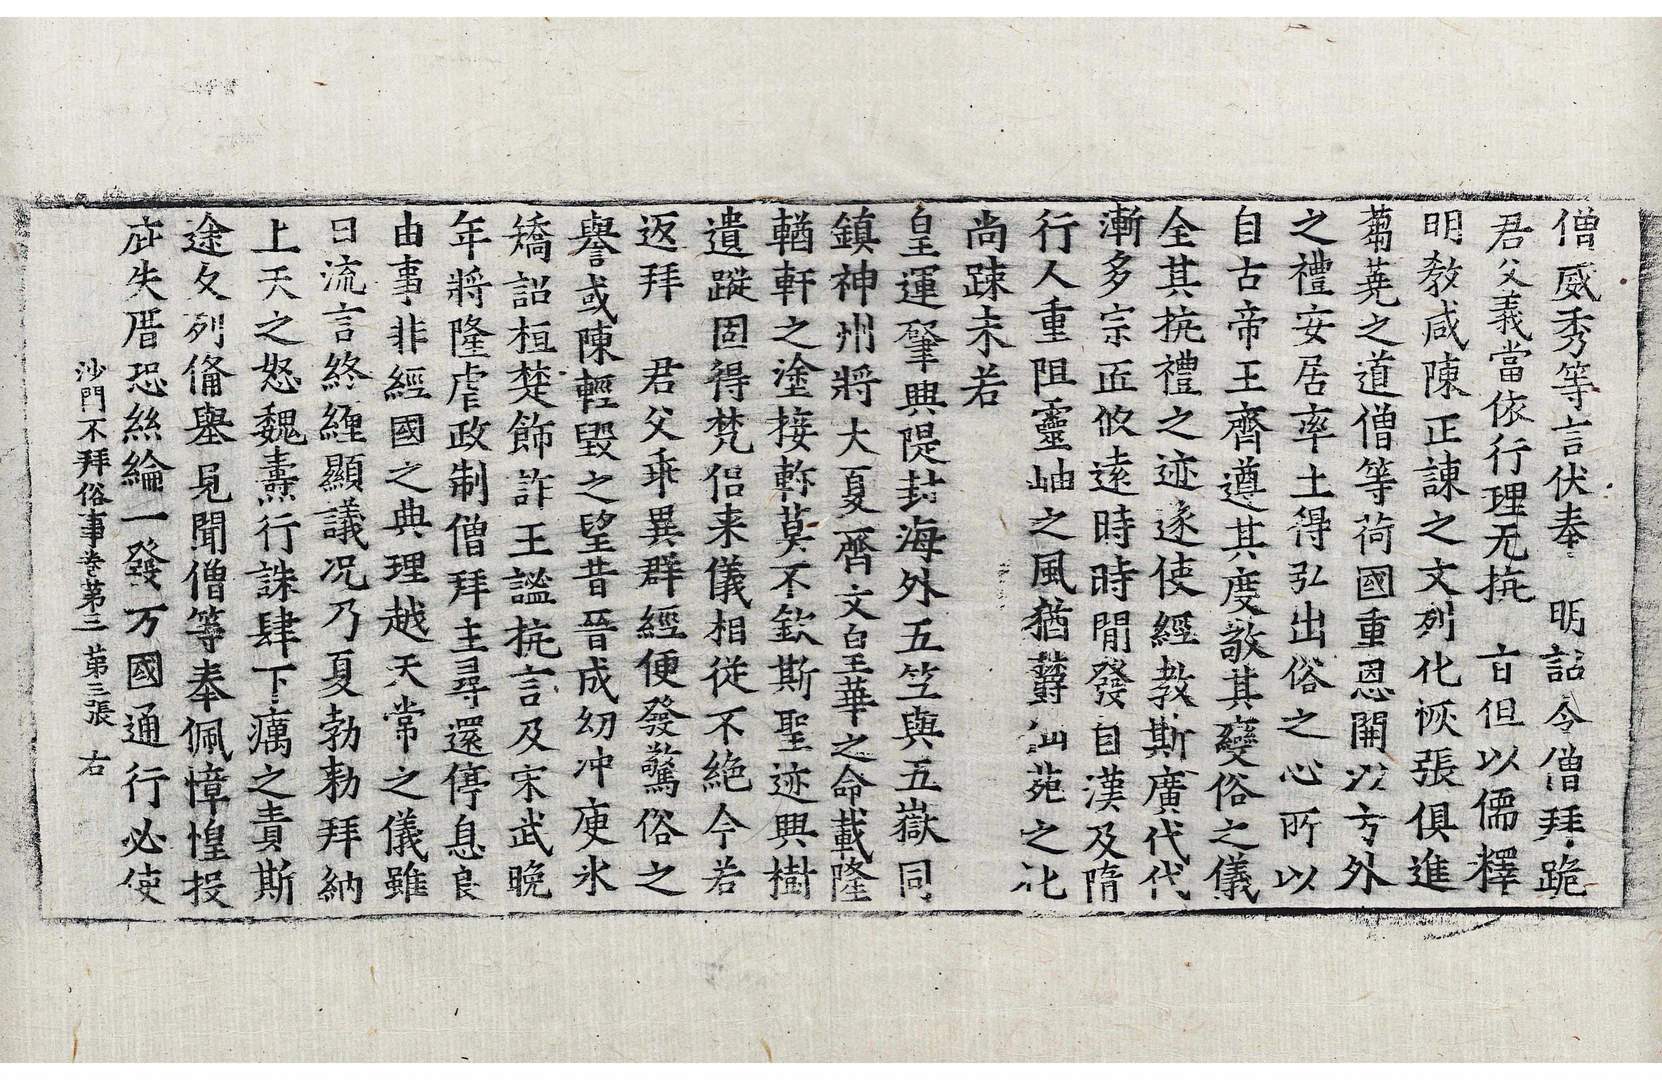 僧威秀等言伏奉 明詔令僧拜跪
君父義當依行理无抗 旨但以儒釋
明教咸陳正諫之文列化恢張俱進
蒭蕘之道僧等荷國重恩開以方外
之禮安居率土得弘出俗之心所以
自古帝王齊遵其度敬其變俗之儀
全其抗禮之迹遂使經教斯廣代代
漸多宗匠攸遠時時間發自漢及隋
行人重阻靈岫之風猶欝仙苑之化
尚踈未若
皇運肇興隄封海外五竺與五嶽同
鎮神州將大夏齊文皇華之命載隆
輶軒之塗接軫莫不欽斯聖迹興樹
遺蹤固得梵侣来儀相從不絶今若
返拜 君父乖異群經便發驚俗之
譽或陳輕毀之望昔晉成幼沖庾氷
矯詔桓楚飾詐王謐抗言及宋武晚
年將隆虐政制僧拜主尋還停息良
由事非經國之典理越天常之儀雖
日流言終纏顯議况乃夏勃勑拜納
上天之怒魏燾行誅肆下癘之責斯
途久列備舉見聞僧等奉佩慞惶投
庇失厝恐絲綸一發万國通行必使
沙門不拜俗事卷第三 第三張 右